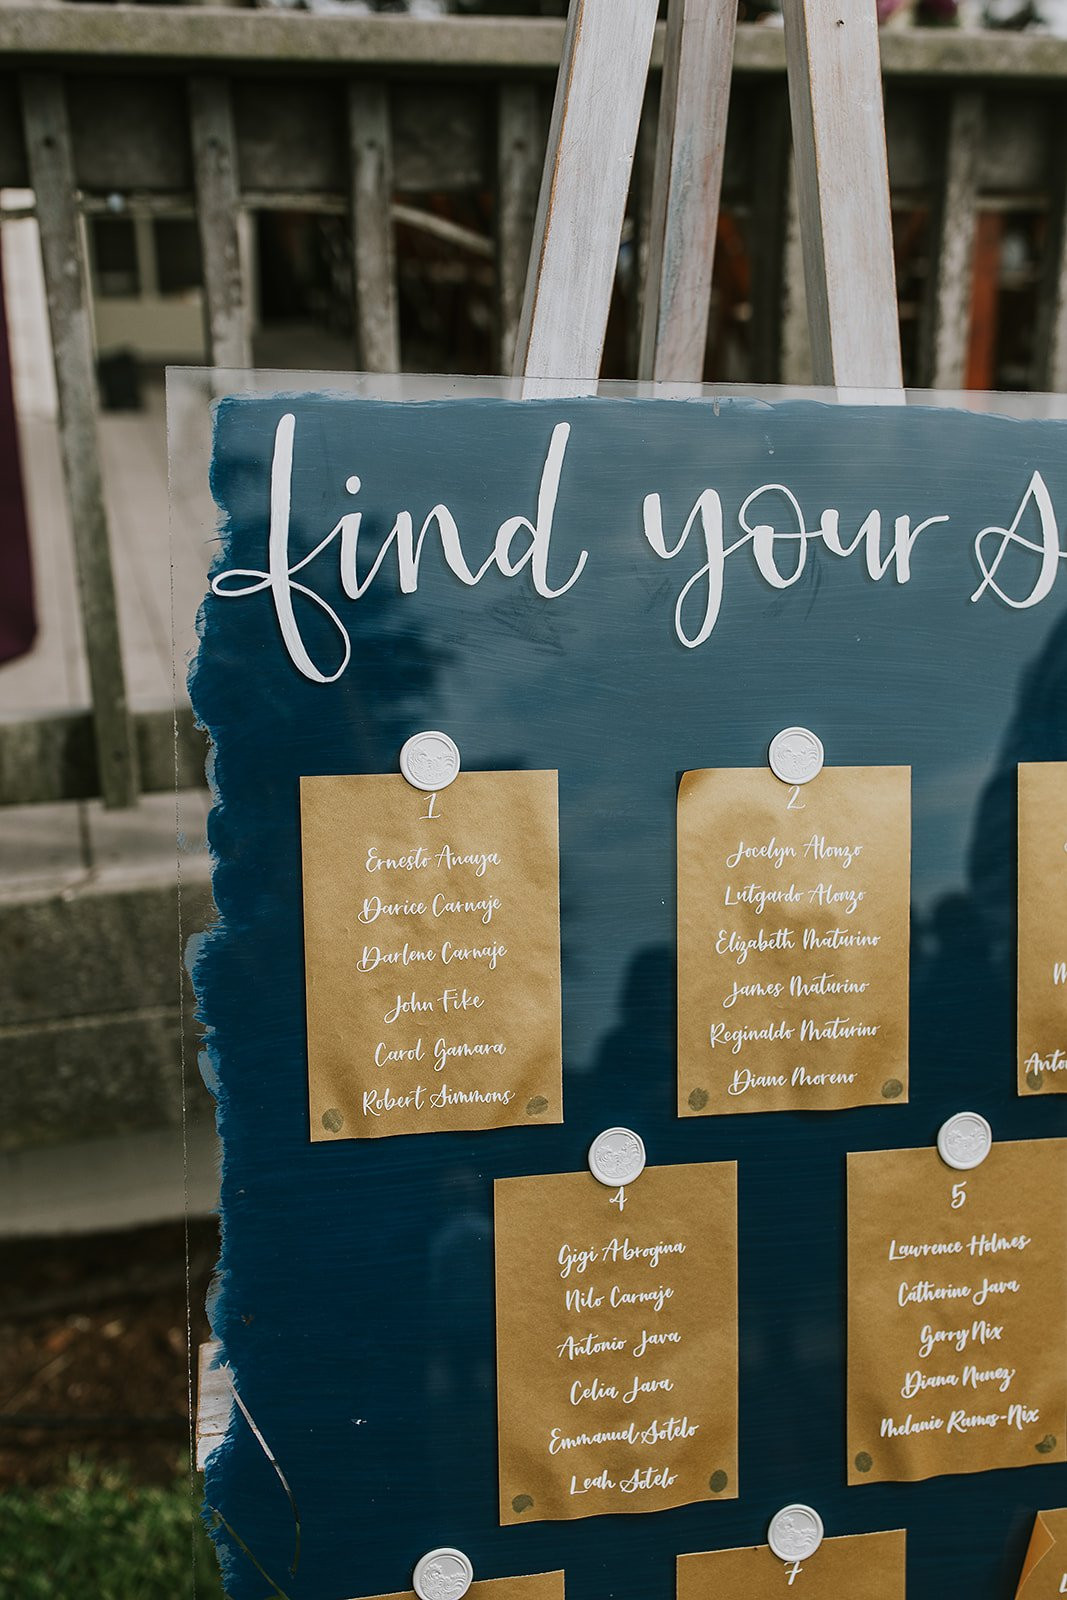 find your s
1
Ernesto Anaya
Darice Carnaje
Darlene Carnaje
John Fike
Carol Gamara
Robert Simmons
2
Jocelyn Alonzo
Lutgardo Alonzo
Elizabeth Maturino
James Maturino
Reginaldo Maturino
Diane Moreno
M
Anto
4
Gigi Abrogina
Nilo Carnaje
Antonio Java
Celia Java
Emmanuel Sotelo
Leah Sotelo
5
Lawrence Holmes
Catherine Java
Gerry Nix
Diana Nunez
Melanie Ramos-Nix
7
L